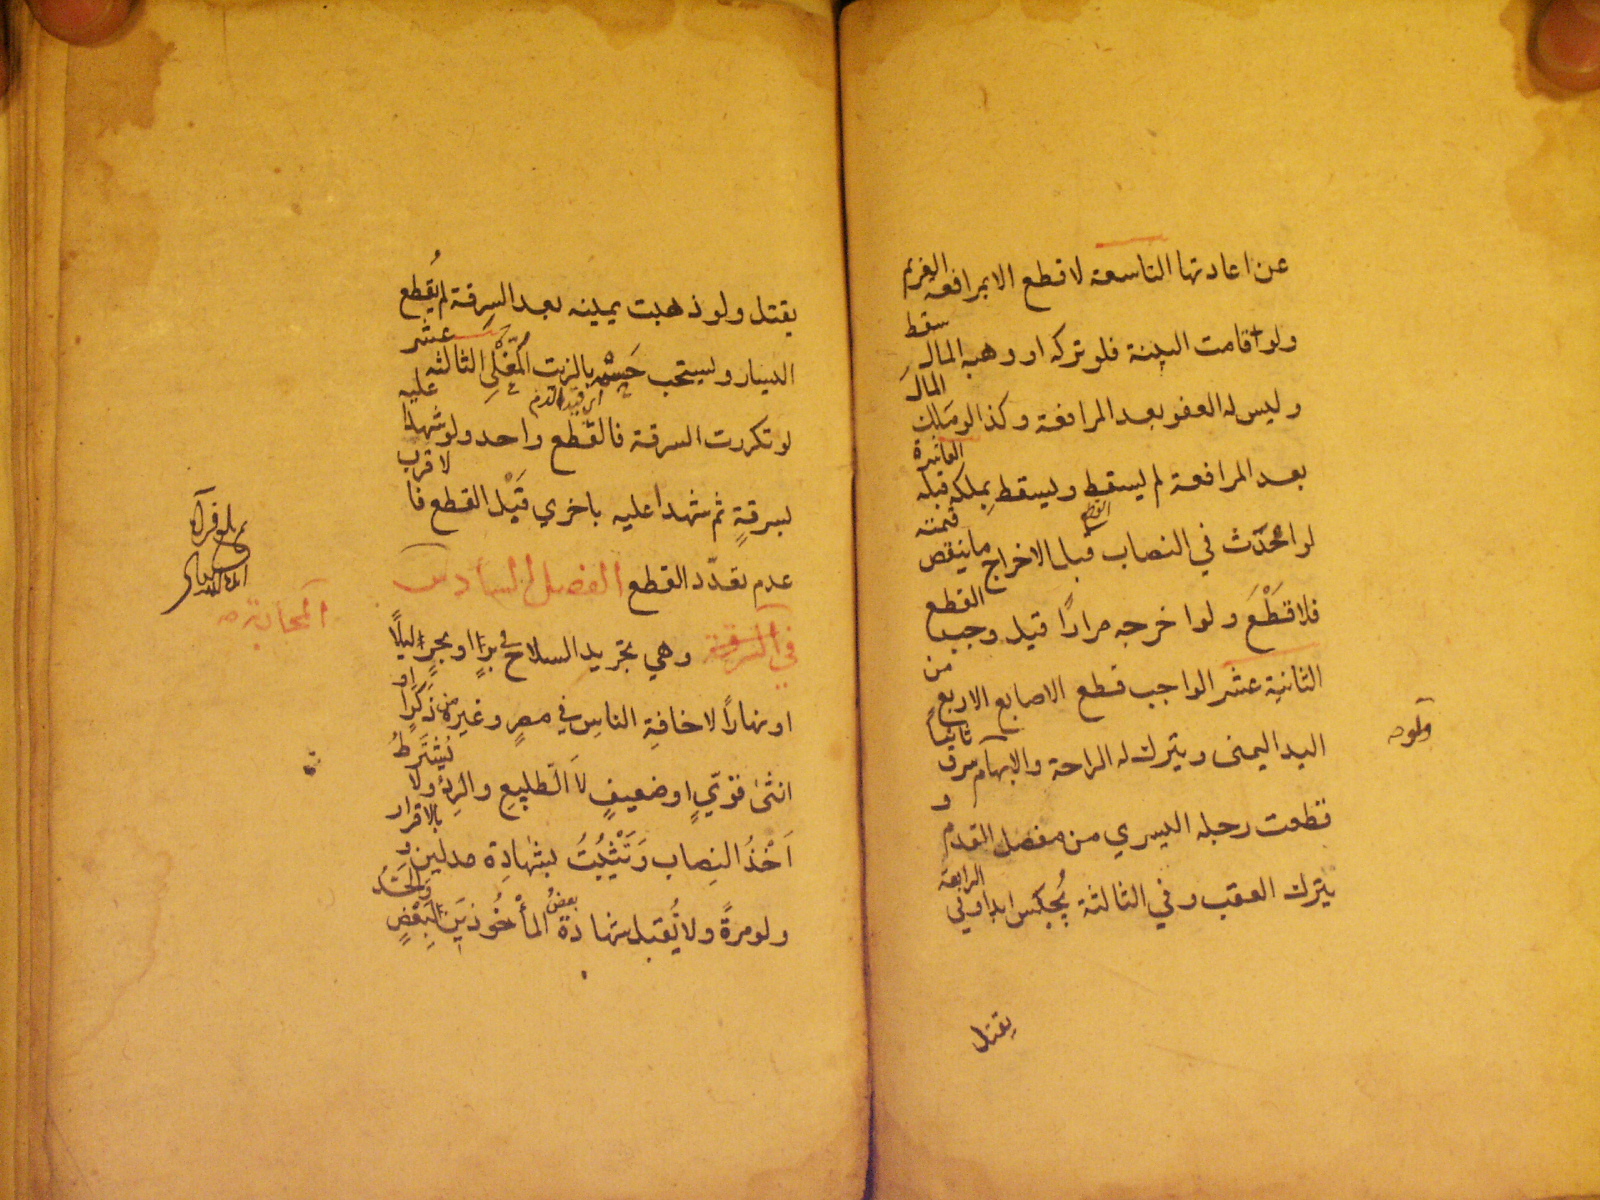 عن اعادتها التاسعة لا قطع الا بمرافعة الغريم
ولو قامت البينة فلو تركه او وهبه المال سقط
وليس له العفو بعد المرافعة وكذا لو ملك المال
بعد المرافعة لم يسقط ويسقط بملكه قبله العاشرة
لو احدث في النصاب قبل الاخراج ما ينقص قيمته
فلا قطع ولو اخرجه مرارا قيل وجب القطع
الثانية عشر الواجب قطع الاصابع الاربع من
اليد اليمنى ويترك له الراحة والابهام سرق ثانيا
قطعت رجله اليسري من مفصل القدم و
يترك العقب وفي الثالثة يحبس ابدا وفي الرابعة
يقتل
يقتل ولو ذهبت يمينه بعد السرقة لم يقطع
اليسار ويستحب حسمه بالزيت المغلي الثالثه عشر
لو تكررت السرقة فالقطع واحد ولو شهدا عليه
بسرقة ثم شهدا عليه باخري قبل القطع فا لاقرب
عدم تعدد القطع الفصل السادس
في السرقة وهي تجريد السلاح في برا او بحرا ليلا
المحاربة صه
او نهارا لاخافة الناس في مصر وغيره من ذكر او
انثى قوي او ضعيف لا الطليع والردء ولا يشترط
اخذ النصاب وتثبت بشهادة عدلين و بالاقرار
ولو مرة ولا تقبل شهادة بعض المأخوذين لبعض